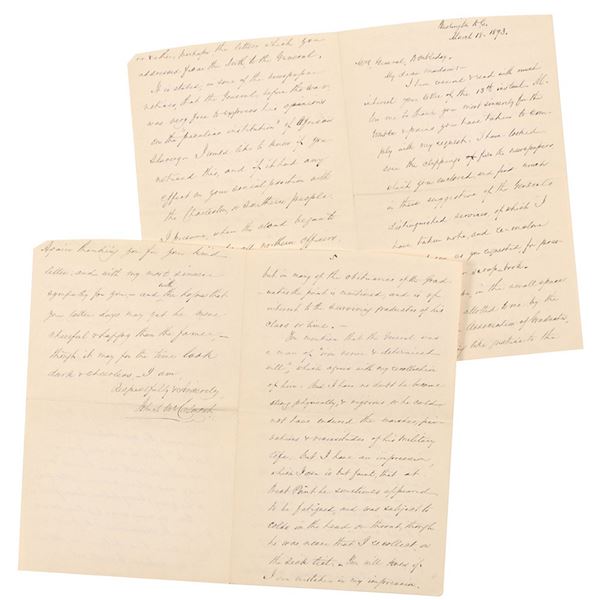 Washington D.C.
March 18 - 1893.
Mrs General Doubleday.
My dear Madame:-
I have received & read with much
interest your letter of the 13th instant. Al-
low me to thank you most sincerely for the
trouble & pains you have taken to com-
ply with my request. I have looked
over the clippings from the newspapers
which you enclosed and find much
in them suggestive of the General's
distinguished services of which I
have taken note, and
as you requested, for
or scrap-book.
in the small space
allotted to me by the
Association of Graduates,
like justice to the
or other, perhaps the letters which you
addressed from the South to the General.
It is stated, in some of the newspaper
notices, that the General, before the war,
was very free to express his opinions
on the "peculiar institution" of African
Slavery. I would like to know if you
noticed this, and if it had any
effect on your social position with
the Charleston or Southern people.
I presume, when the cloud began to
northern officers
5
but in many of the obituaries of the Grad-
uates the fact is mentioned, and is of
interest to the surviving graduates of his
class or time. -
You mention that the General was
a man of iron nerve & determined
will, which agrees with my recollection
of him. And I have no doubt he became
strong physically, & vigorous or he could
not have endured the marches, pri-
vations & vicissitudes of his military
life, but I have an impression,
which I own is but faint, that at
West Point he sometimes appeared
to be fatigued, and was subject to
colds in the head or throat, though
he was never that I recollect on
the sick list. - You will know if
I am mistaken in my impression.
Again thanking you for your kind
letter, and with my most sincere
sympathy for you, - and with the hopes that
your later days may yet be more
cheerful & happy than the former, -
though it may for the time look
dark & cheerless, - I am
Respectfully & Sincerely